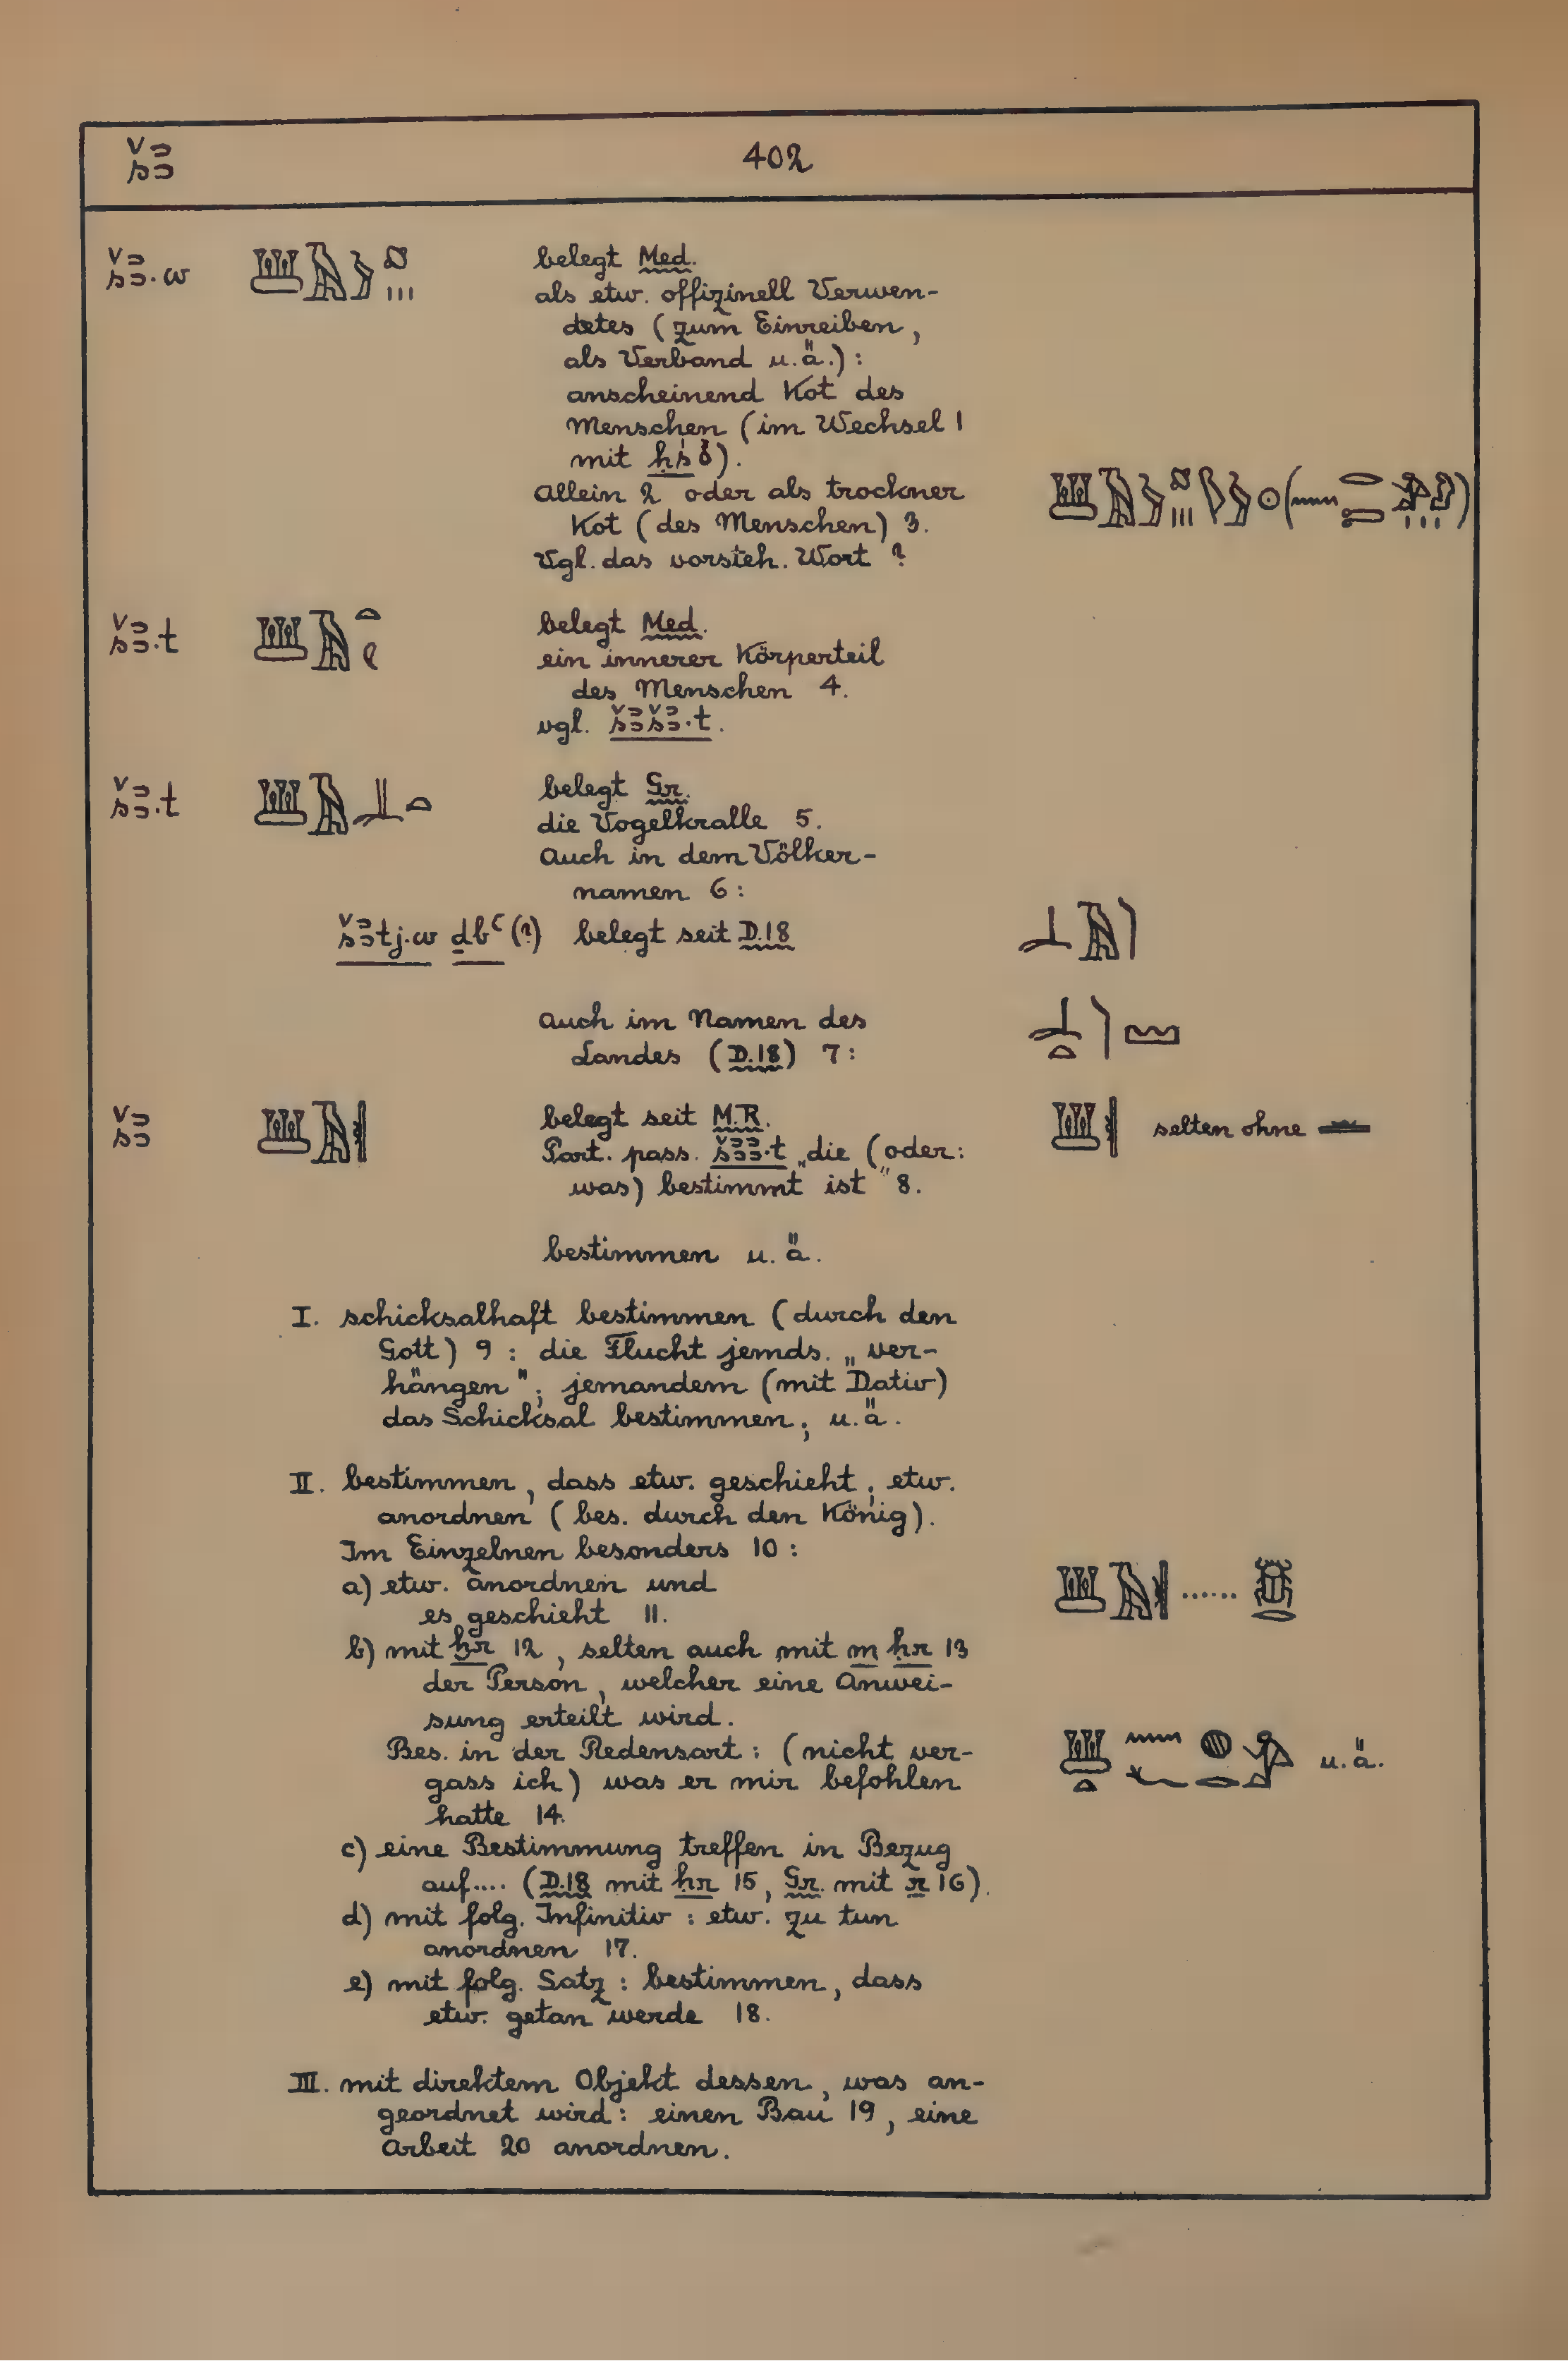 šꜣ 402
šꜣ.w belegt Med.
als etw. offizinell Verwen-
detes (zum Einreiben,
als Verband u.ä.):
anscheinend Kot des
Menschen (im Wechsel 1
mit
Allein 2 oder als trockner
Kot (des Menschen) 3.
Vgl. das vorsteh. Wort ?
šꜣ.t belegt Med.
ein innerer Körperteil
des Menschen 4.
vgl. šꜣšꜣ.t.
šꜣ.t belegt Gr.
die Vogelkralle 5.
Auch in dem Völker-
namen 6:
šꜣtj.w ḏbꜥ (?) belegt seit D.18
Auch im Namen des
Landes (D.18) 7:
šꜣ belegt seit M.R. selten ohne
Part. pass. šꜣꜣ.t „die (oder:
was) bestimmt ist" 8.
bestimmen u.ä.
I. schicksalhaft bestimmen (durch den
Gott) 9: die Flucht jemds. „ver-
hängen"; jemandem (mit Dativ)
das Schicksal bestimmen; u.ä.
II. bestimmen, dass etw. geschieht; etw.
anordnen (bes. durch den König).
Im Einzelnen besonders 10:
a) etw. anordnen und ......
es geschieht 11.
b) mit ḫr 12, selten auch mit m ḥr 13
der Person, welcher eine Anwei-
sung erteilt wird.
Bes. in der Redensart: (nicht ver-
gass ich) was er mir befohlen u.ä.
hatte 14.
c) eine Bestimmung treffen in Bezug
auf.... (D.18 mit ḥr 15, Gr. mit r 16).
d) mit folg. Infinitiv: etw. zu tun
anordnen 17.
e) mit folg. Satz: bestimmen, dass
etw. getan werde 18.
III. mit direktem Objekt dessen, was an-
geordnet wird: einen Bau 19, eine
Arbeit 20 anordnen.